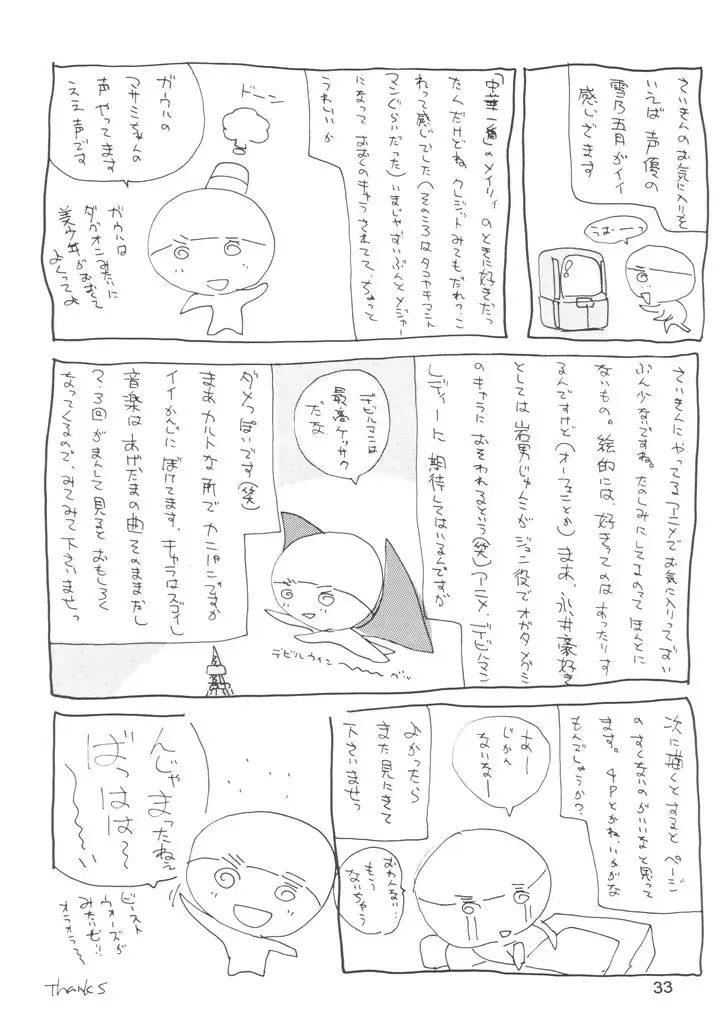 さいきんのお気に入りと
いえば 声優の
雪乃五月がイイ
感じざます
うおーっ
「中華一番」のメイリィのときに好きだっ
たんだけどね クレジットみてもだれ?こ
れって感じでした(そのころはタコヤキマント
マンぐらいだった)いまじゃずいぶんとメジャー
になって おおくのキャラされてて、ちょっと
うれしいか
ドーン
ガウルの
マナミちゃんの
声やってます
ええ声です
ガウルは
ダグオンみたいに
美少年がおおくて
よくってよ
さいきんにやってるアニメでお気に入りって ずい
ぶん少ないですね。たのしみにしてるのって ほんとに
ないもの。絵的には、好きってのは あったりす
るんですけど(オーフェンとか) まあ、永井豪好き
としては 岩男じゅんこが ジュン役で オガタメグミ
のキャラに おそわれるという(笑)アニメ、デビルマン
レディーに 期待してはいるんですが
デビルマンは
最高ケッサク
だな
ダメっぽいです(笑)
まあ カルトな所で カニパンですか
イイかんじに ぼけてます。キャラはスゴイし
音楽は あげだまの曲そのままだし
2・3回がまんして見ると おもしろく
なってくるので、みてみて下さいませっ
デビルウイン〜〜〜グッ
次に描くとすると ページ
のすくないのがいいなと思って
ます。4Pとかね、いかがな
もんでしょうか?
あー
じかん
ないなー
おわんない…
もう
ないちゃう
よかったら
また見にきて
下さいませっ
んじゃまったねぇ
ばっはは〜
〜〜い
ビースト
ウォーズが
みたいぜ!!
オラオラ〜
Thanks
33